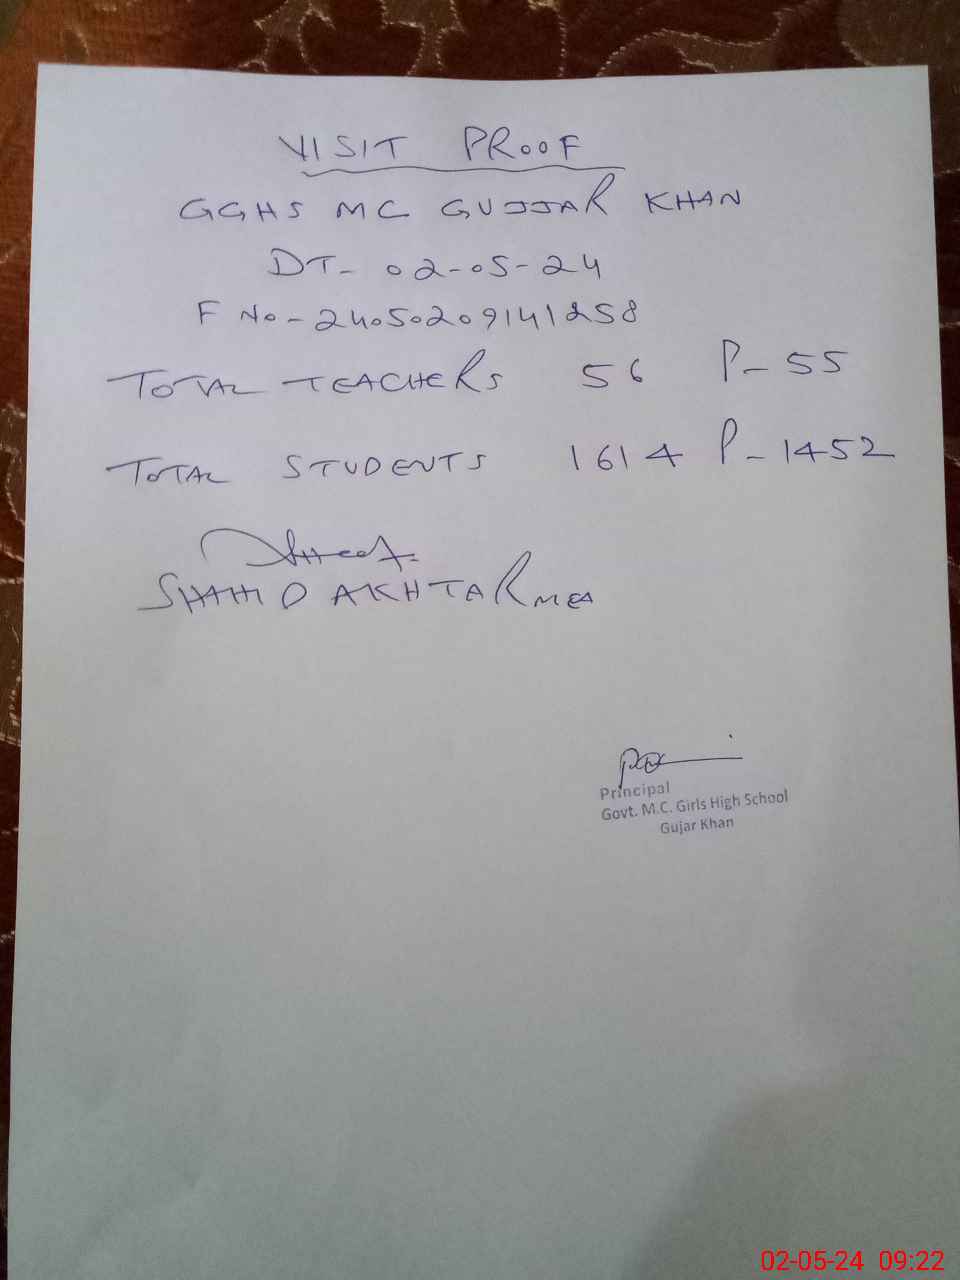 VISIT PROOF
GGHS MC GUJJAR KHAN
DT- 02-05-24
F No- 24050209141258
TOTAL TEACHERS 56 P- 55
TOTAL STUDENTS 1614 P- 1452
SHAHID AKHTAR MEA
Principal
Govt. M.C. Girls High School
Gujar Khan
02-05-24 09:22